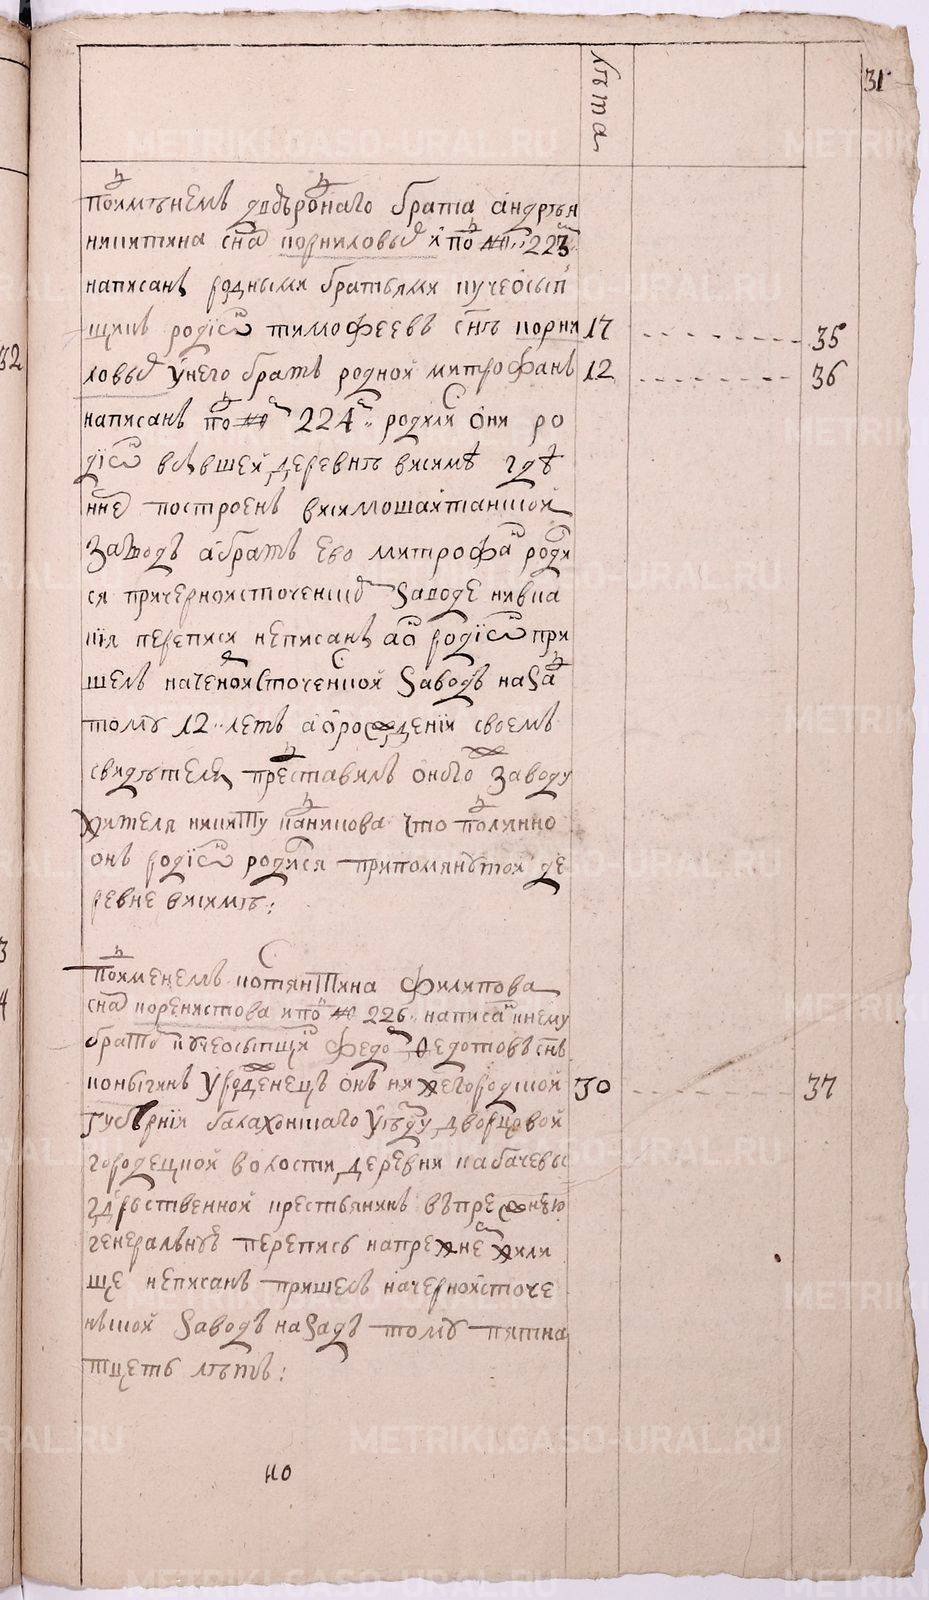 31
лѣта
поимянемъ двоюроднаго брата андрѣя
никитина сна корниловыхъ ипо № 223
написанъ родными братьями кучеосып
щикъ родiонъ тимофеевъ снъ корни 17 35
ловыхъ у него братъ родной митрофанъ 12 36
написанъ по № 224 родились они ро
дiонъ въ бывшей деревнѣ висимѣ гдѣ
ннѣ построенъ висимошайтанской
заводъ а братъ ево митрофанъ родил
ся при черноисточенскомъ заводе
нiя переписи неписанъ а онъ родiонъ при
шелъ на черноисточенской заводъ назадъ
тому 12 летъ а о рожденiи своемъ
свидѣтеля представилъ оного заводу
жителя никиту что подлинно
онъ родiонъ родился при помянутой де
ревне висимѣ:
поименемъ костянтина филипова
сна коренистова ипо № 226 написанъ к нему
братомъ кучеосыпщикъ федоръ федотовъ снъ
уроженецъ онъ нижегородской 30 37
губернiи балахонскаго уѣзду дворцовой
городецкой волости деревни кабачевы
гдрьственной крестьянинъ въ прежнею
генеральную перепись на прежнемъ жили
ще неписанъ пришелъ на черноисточе
нской заводъ назадъ тому пятна
тцеть лѣтъ:
но
METRIKI.GASO-URAL.RU